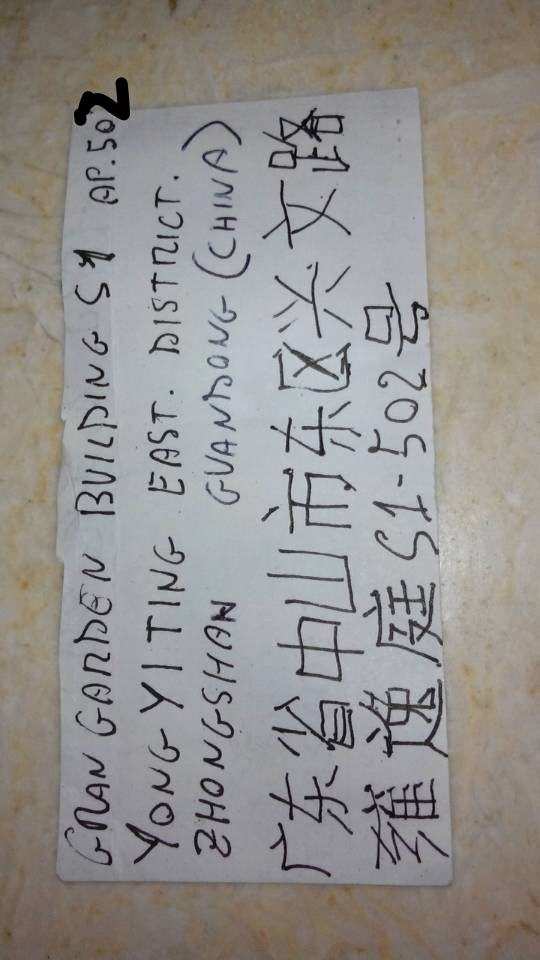 GRAN GARDEN BUILDING S1 AP.502
YONG YITING EAST. DISTRICT.
ZHONGSHAN GUANDONG (CHINA)
广东省中山市东区兴文路
雍逸庭S1-502号